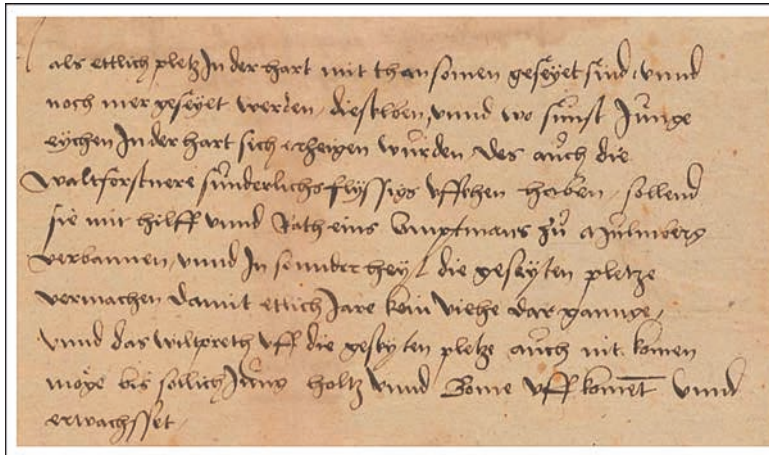 als ettlich pletz In der hart mit thansomen geseyet sind, vnnd
noch mer geseyet werden, dieselben, vnnd wo sunst Junge
eychen In der hart sich erzeigen wurden, des auch die
waltforstnere sunderlichs flyssigs vffsehen haben, sollend
sie mit hilff vnnd Rath eins Amptmans zu Mulnberg
verbannen, vnnd In sonnderheyt die geseyten pletze
vermachen damit ettlich Jare kein viehe dar gannge,
vnnd das wiltpreth vff die geseyten pletze auch nit komen
möge bis sollich Jung holtz vnnd Bome vff komet vnnd
erwachsset.